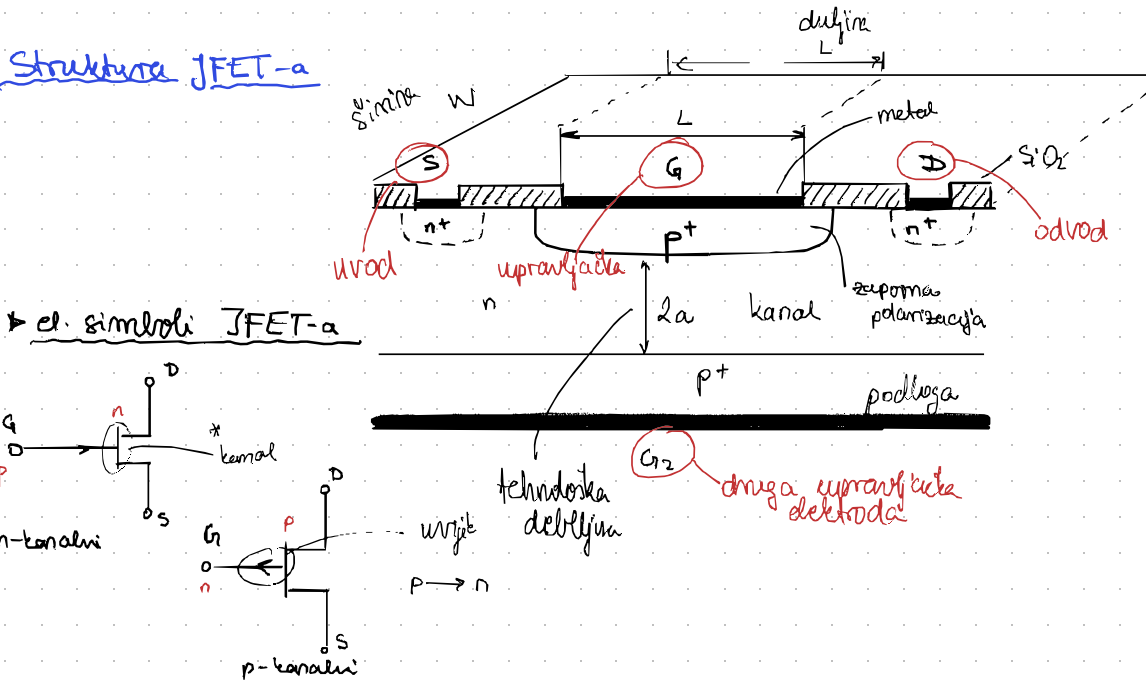 Struktura JFET-a
duljina
L
širina W
L
metal
S
G
D
SiO2
n+
p+
n+
uvod
upravljačka
odvod
zaporna
polarizacija
n
2a
kanal
p+
podloga
G2
druga upravljačka
elektroda
tehnološka
debljina
el. simboli JFET-a
D
n
G
*
kanal
p
S
n-kanalni
D
p
G
n
uvijek
p → n
S
p-kanalni